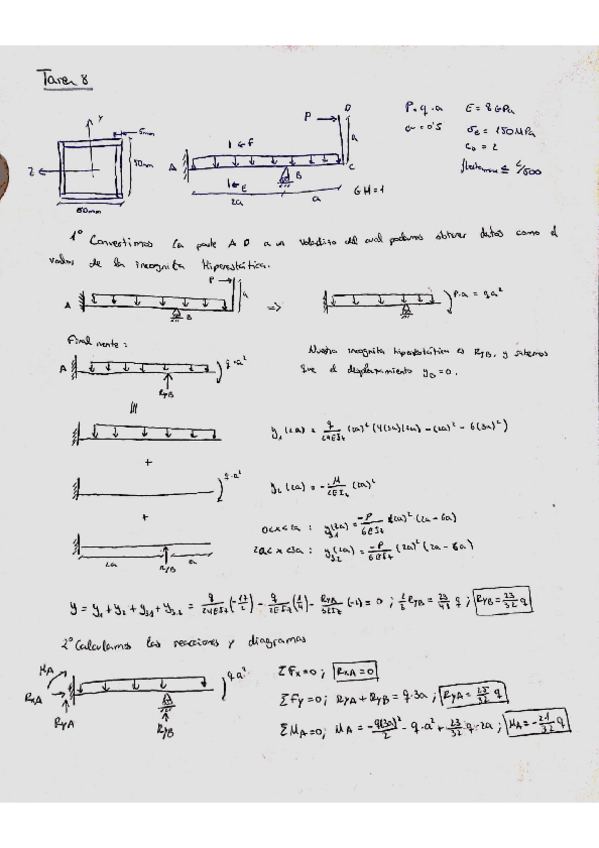 Tarea 8
P = q·a E = 8 GPa
a = 0'5 σe = 150 MPa
Cs = 2
flecha max ≤ L/500
Y
5mm
80mm
Z
80mm
P D
a
F
A B C
E GH=1
2a a
1º Convertimos la parte A D a un voladizo del cual podemos obtener datos como el
valor de la incognita Hiperestática.
P a
A B => P·a = qa²
Finalmente:
Nuestra incognita hiperestática es RyB, y sabemos
que el desplazamiento yB = 0.
A q·a²
RyB
y₁(2a) = q/24EIz (2a)² (4(3a)(2a) - (2a)² - 6(3a)²)
+
q·a²
y₂(2a) = -M/2EIz (2a)²
+
0<x<2a : y₃₁(2a) = -P/6EIz (2a)² (2a-6a)
2a<x<3a : y₃₂(2a) = -P/6EIz (2a)² (2a-6a)
2a RyB a
y = y₁ + y₂ + y₃₁ + y₃₂ = q/24EIz (-17/2) - q/2EIz (1/4) - RyB/3EIz (-1) = 0 ; RyB = 23/48 q ; RyB = 23/32 q
2º Calculamos las reacciones y diagramas
MA q·a²
RxA
RyA RyB
ΣFx = 0 ; RxA = 0
ΣFy = 0 ; RyA + RyB = q·3a ; RyA = 25/32 q
ΣMA = 0 ; MA = -q(3a)²/2 - q·a² + 23/32 q·2a ; MA = -21/32 q